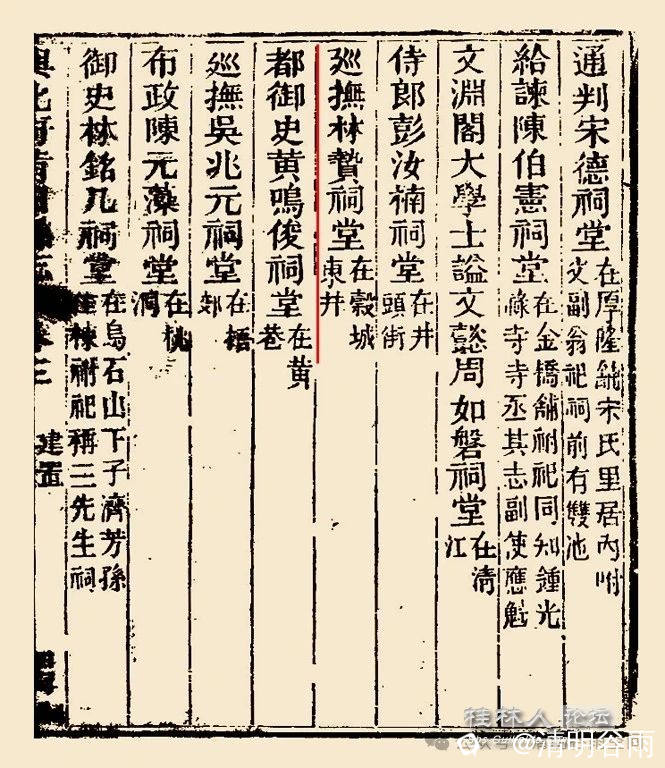 通判宋德祠堂 在厚隆鋪宋氏里居內附父副翁祀祠前有雙池
給諫陳伯憲祠堂 在金橋舖祔祀同知鍾光祿寺寺丞其志副使應魁
文淵閣大學士謚文懿周如磐祠堂 在清江
侍郎彭汝楠祠堂 在井頭街
廵撫林贄祠堂 在穀城東井
都御史黄鳴俊祠堂 在黄巷
廵撫吳兆元祠堂 在梧郊
布政陳元藻祠堂 在桃洞
御史林銘几祠堂 在烏石山下子濟芳孫棟祔祀稱三先生祠
興化府莆田縣志 卷三 建置
桂林人论坛
@清明谷雨